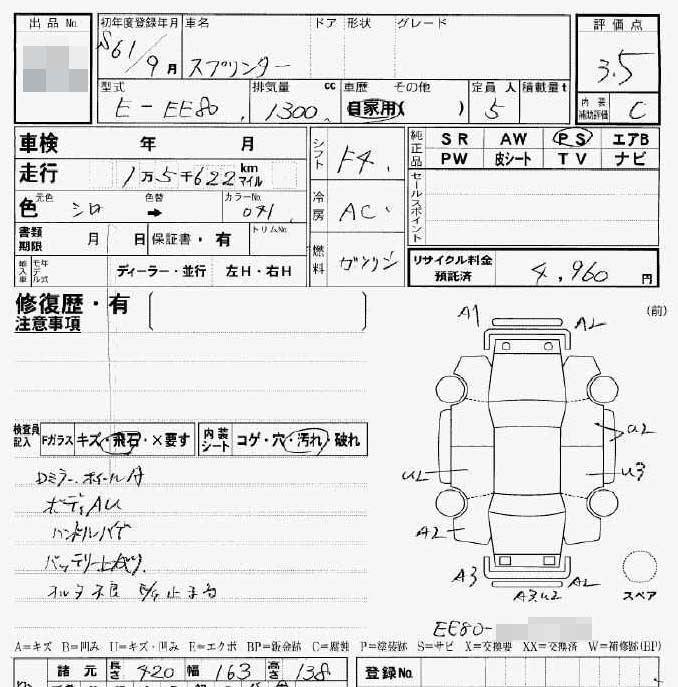 出品 No.
初年度登録年月 車名 ドア 形状 グレード
評価点
S61/9月 スプリンター
3.5
型式 排気量 cc 車歴 その他 定員 人 積載量 t
E-EE80 1300 自家用( ) 5
内装補助評価 C
車検 年 月
シフト F4
純正品 SR AW PS エアB
PW 皮シート TV ナビ
走行 1万5千622 km マイル
セールスポイント
冷房 AC
色 元色 シロ 色替 → カラーNo. 041
書類期限 月 日 保証書・有 トリムNo.
燃料 ガソリン
輸入車 モデル年式 ディーラー・並行 左H・右H
リサイクル料金預託済 4,960 円
修復歴・有
注意事項
A1 A2 (前)
検査員記入 Fガラス キズ・飛石・×要す 内装シート コゲ・穴・汚れ・破れ
U2
Dミラー、ホイール付
U2 U3
ボディAU
A2
バッテリー上がり
A3 A2
A3.U2
スペア
EE80-
A=キズ B=凹み U=キズ・凹み E=エクボ BP=鈑金跡 C=腐蝕 P=塗装跡 S=サビ X=交換要 XX=交換済 W=補修跡(BP)
諸元 長さ 420 幅 163 高さ 138 登録No.